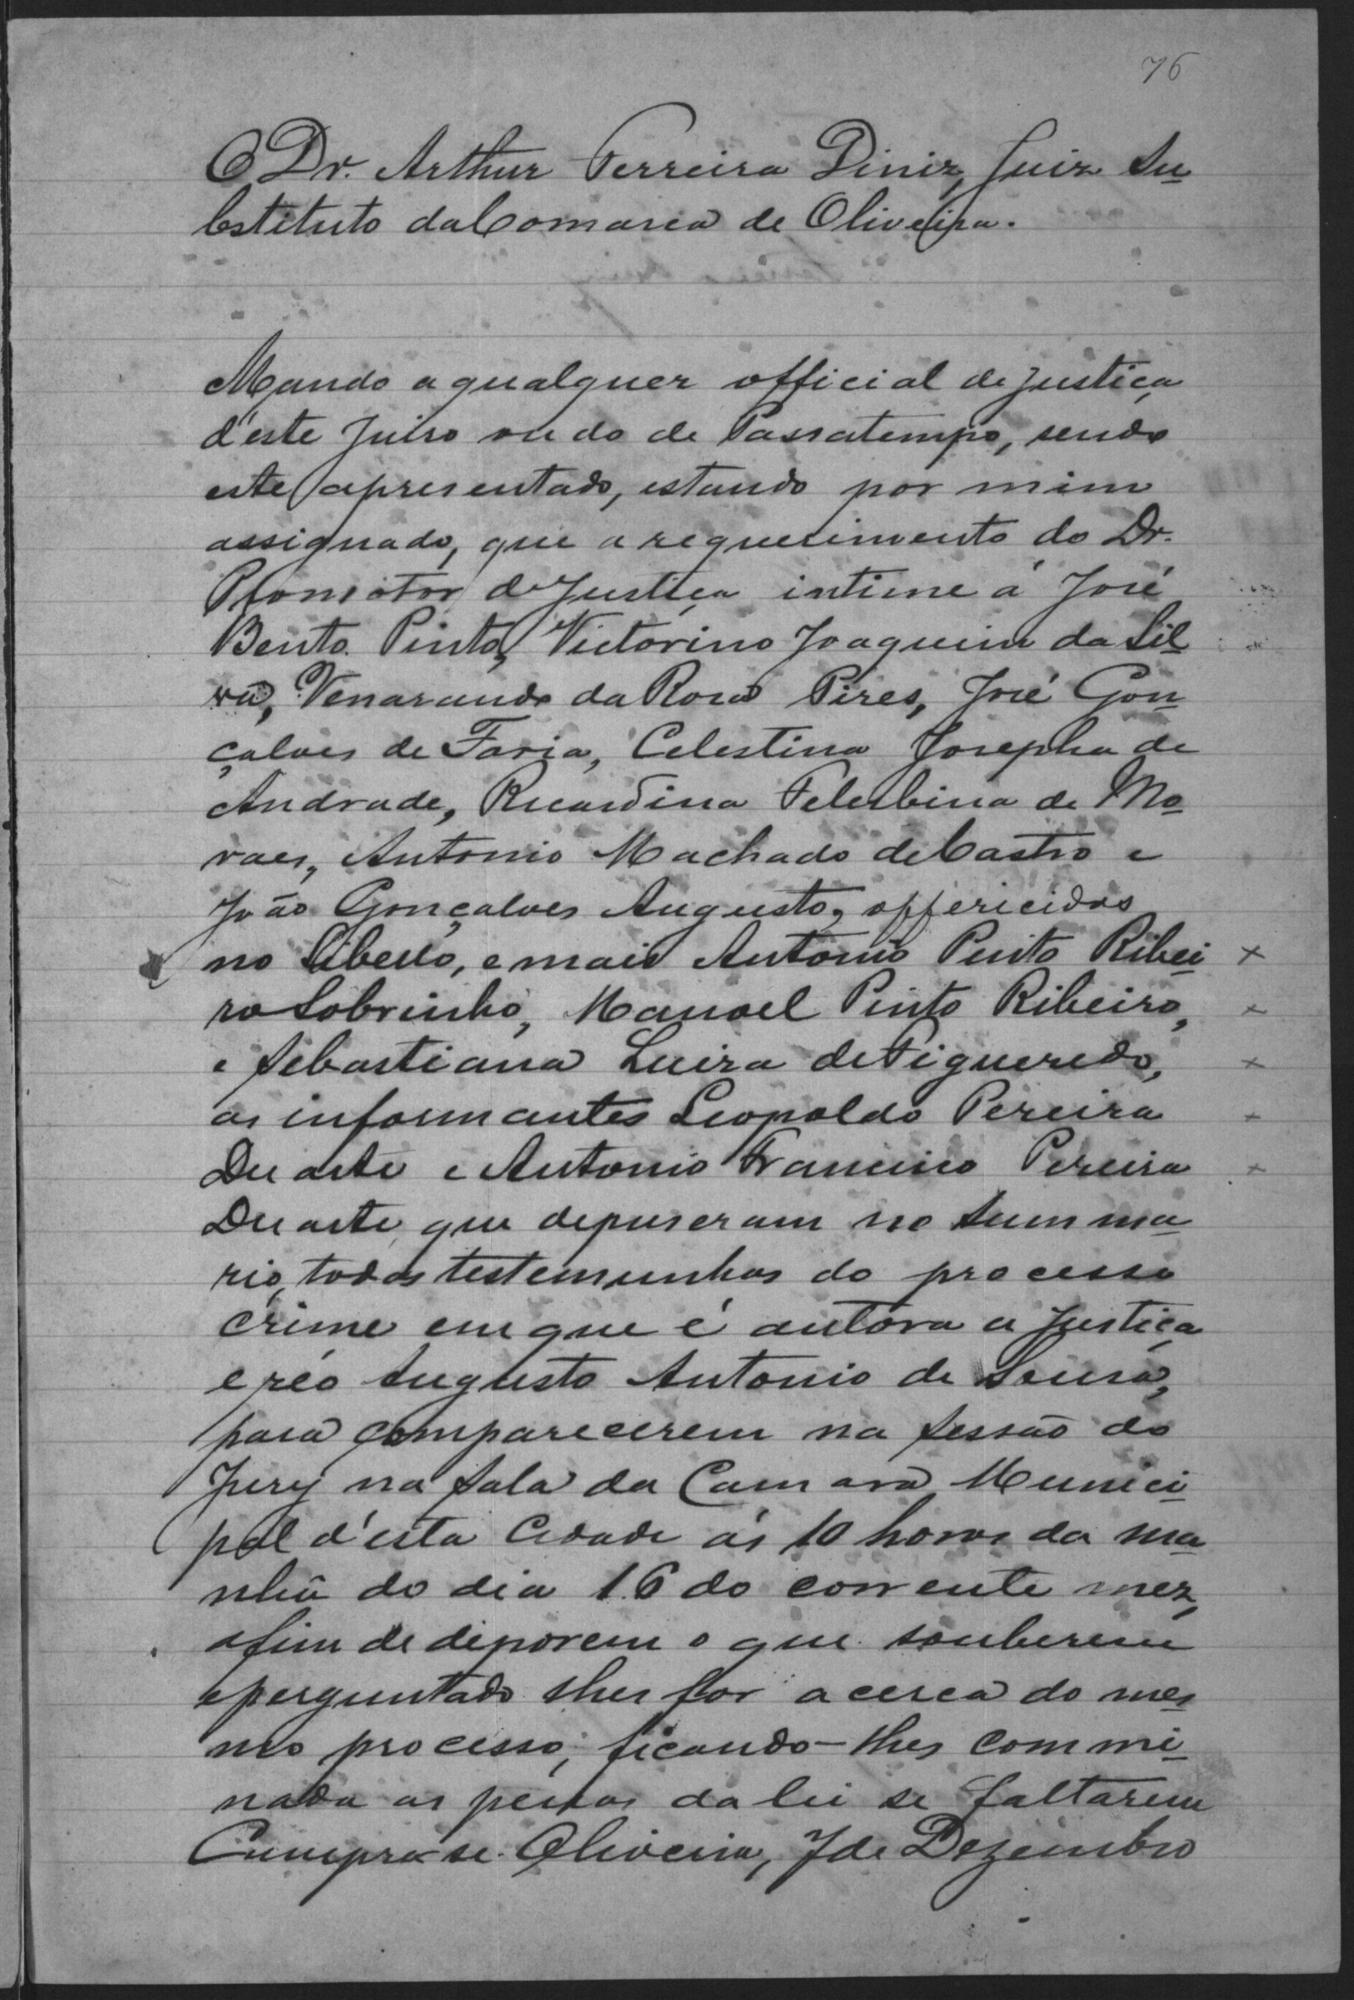 76
O Dr. Arthur Ferreira Diniz, Juiz Su
bstituto da Comarca de Oliveira.
Mando a qualquer official de justiça
d'este Juiso ou do de Passatempo, sendo
este apresentado, estando por mim
assignado, que a requerimento do Dr.
Promotor de Justiça intime á José
Bento Pinto, Victorino Joaquim da Sil
va, Venerando da Rosa Pires, José Gon
çalves de Faria, Celestina Josepha de
Andrade, Ricardina Felisbina de Mo
raes, Antonio Machado de Castro e
João Gonçalves Augusto, offericidos
no libello, e mais Antonio Pinto Ribei
ro Sobrinho, Manoel Pinto Ribeiro,
e Sebastiana Luiza de Figueredo,
os informantes Leopoldo Pereira
Duarte e Antonio Francisco Pereira
Duarte, que depuseram no summa
rio, todos testemunhas do processo
crime em que é autora a Justiça
e réo Augusto Antonio de Sousa,
para comparecerem na sessão do
Jury na sala da Camara Munici
pal d'esta Cidade ás 10 horas da ma
nhã do dia 16 do corrente mez,
afim de deporem o que souberem
e perguntado lhes for acerca do mes
mo processo, ficando-lhes commi
nada as penas da lei se faltarem
Cumpra-se. Oliveira, 7 de Dezembro